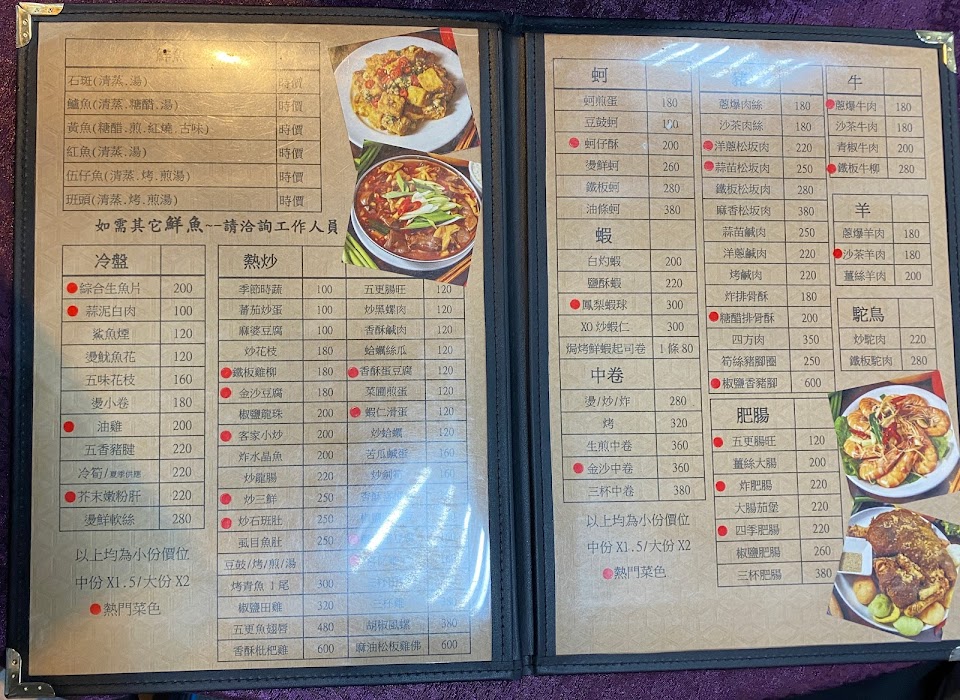 鮮魚
石斑(清蒸.湯) 時價
鱸魚(清蒸.糖醋.湯) 時價
黃魚(糖醋.煎.紅燒.古味) 時價
紅魚(清蒸.湯) 時價
伍仔魚(清蒸.烤.煎湯) 時價
班頭(清蒸.烤.煎湯) 時價
如需其它鮮魚~~請洽詢工作人員
冷盤
綜合生魚片 200
蒜泥白肉 100
鯊魚煙 120
燙魷魚花 120
五味花枝 160
燙小卷 180
油雞 200
五香豬腱 220
冷筍/夏季供應 220
芥末嫩粉肝 220
燙鮮軟絲 280
以上均為小份價位
中份X1.5/大份X2
熱門菜色
熱炒
季節時蔬 100
蕃茄炒蛋 100
麻婆豆腐 100
炒花枝 180
鐵板雞柳 180
金沙豆腐 180
椒鹽龍珠 200
客家小炒 200
炸水晶魚 200
炒龍腸 220
炒三鮮 250
炒石班肚 250
虱目魚肚 250
豆鼓/烤/煎/湯
烤青魚1尾 300
椒鹽田雞 320
五更魚翅唇 480
香酥枇杷雞 600
五更腸旺 120
炒黑螺肉 120
香酥鹹肉 120
蛤蠣絲瓜 120
香酥蛋豆腐 120
菜圃煎蛋 120
蝦仁滑蛋 120
炒蛤蠣
苦瓜鹹蛋 160
160
胡椒風螺 380
麻油松板雞佛 600
蚵
蚵煎蛋 180
豆鼓蚵
蚵仔酥 200
燙鮮蚵 260
鐵板蚵 280
油條蚵 380
蝦
白灼蝦 200
鹽酥蝦 220
鳳梨蝦球 300
XO炒蝦仁 300
焗烤鮮蝦起司卷 1條80
中卷
燙/炒/炸 280
烤 320
生煎中卷 360
金沙中卷 360
三杯中卷 380
以上均為小份價位
中份X1.5/大份X2
熱門菜色
蔥爆肉絲 180
沙茶肉絲 180
洋蔥松坂肉 220
蒜苗松坂肉 250
鐵板松坂肉 280
麻香松坂肉 380
蒜苗鹹肉 200
洋蔥鹹肉 220
烤鹹肉 220
炸排骨酥 180
糖醋排骨酥 200
四方肉 350
筍絲豬腳圈 250
椒鹽香豬腳 600
肥腸
五更腸旺 120
薑絲大腸 200
炸肥腸 220
大腸茄煲 220
四季肥腸 220
椒鹽肥腸 260
三杯肥腸 380
牛
蔥爆牛肉 180
沙茶牛肉 180
青椒牛肉 200
鐵板牛柳 280
羊
蔥爆羊肉 180
沙茶羊肉 180
薑絲羊肉 200
駝鳥
炒駝肉 220
鐵板駝肉 280